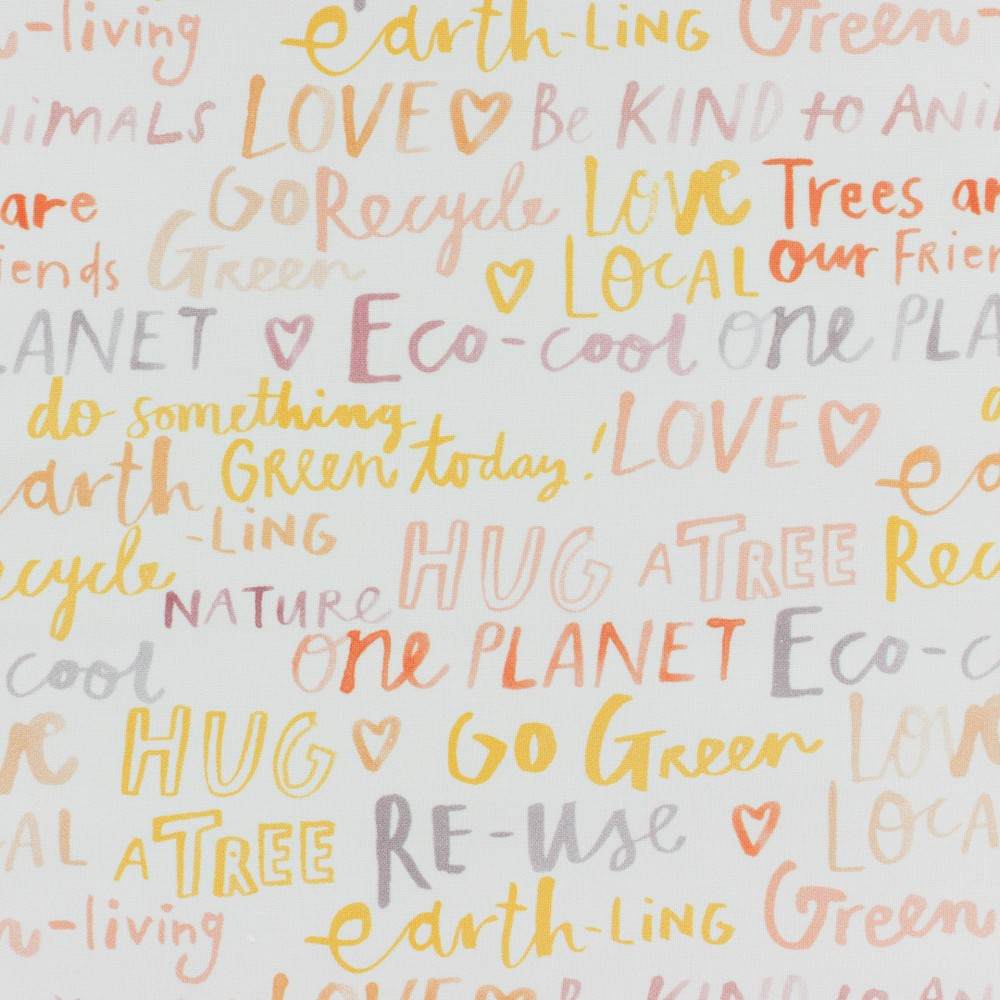 n-living earth-LiNG Green-
NiMALS LOVE Be KIND to ANi
are GO Recycle LOVE Trees ar
iends Green LOCAL our Frier
LANET Eco-cool one PLA
do something LOVE
arth Green today! ea
-LiNG HUG A TREE Rec
ecycle NATURE
cool one PLANET Eco-c
ve HUG GO Green Lov
CAL A TREE RE-use LOCA
n-living earth-LiNG Green
LOVE Be KIND to AN